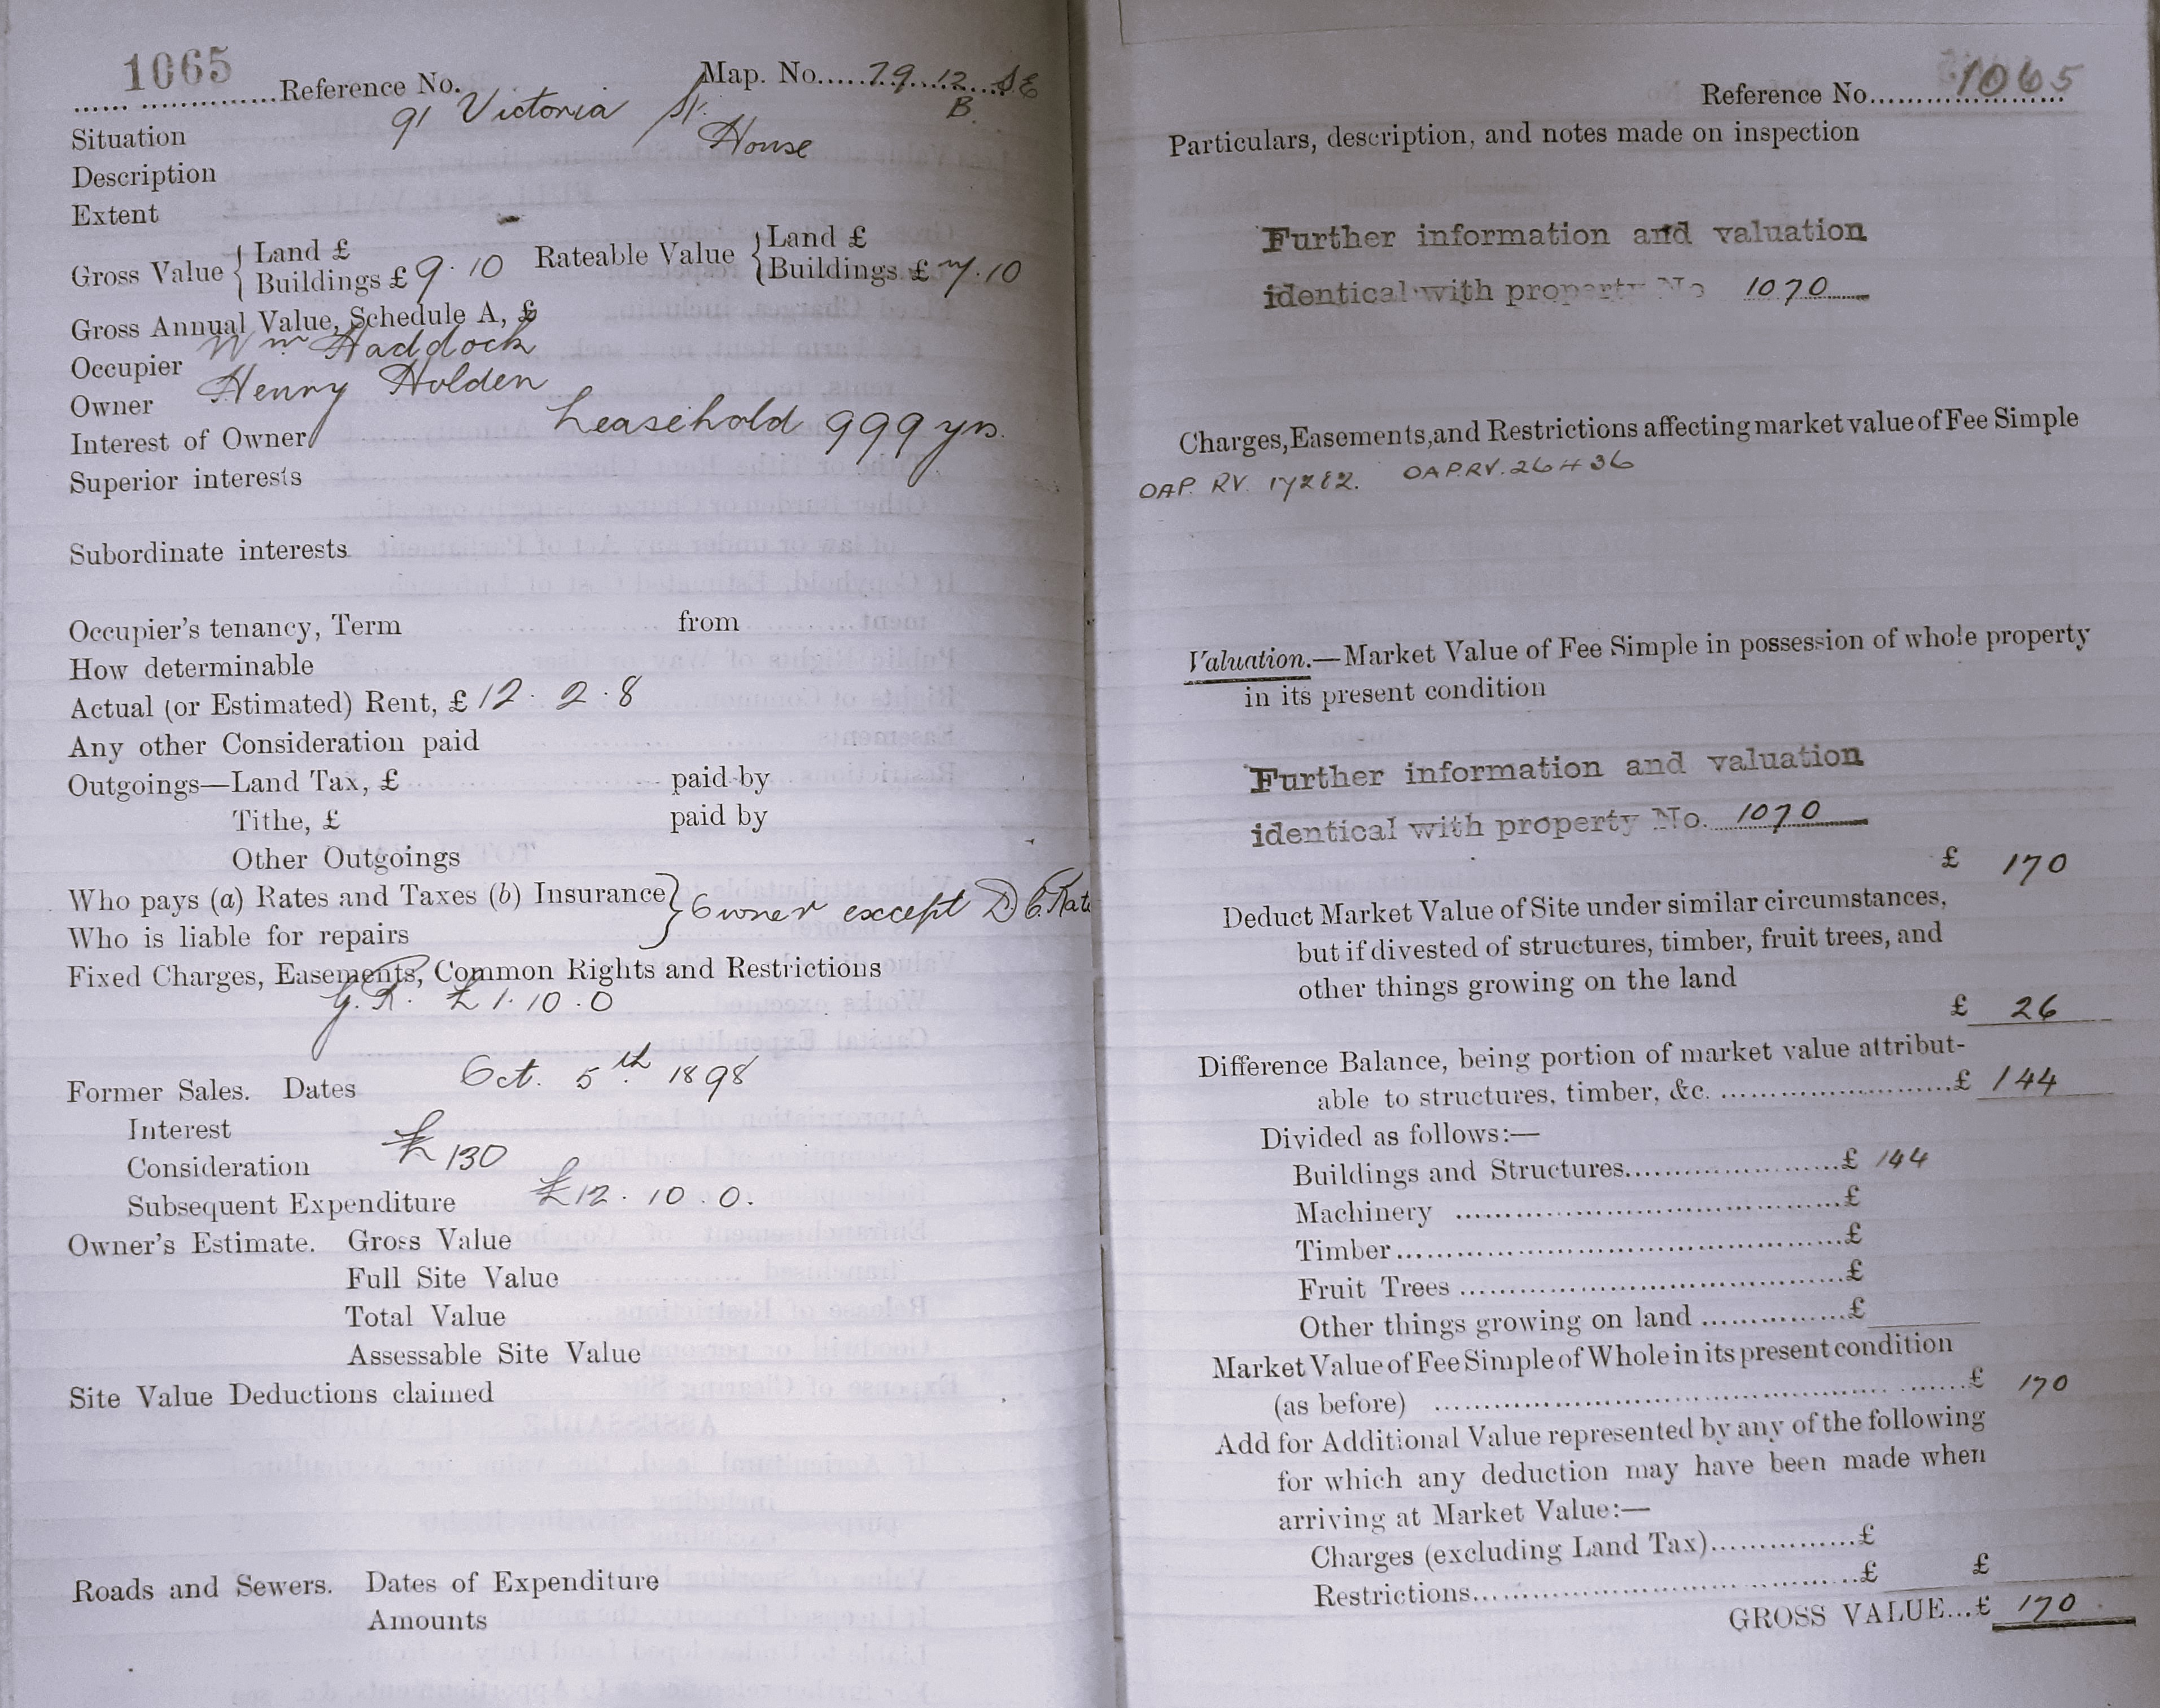 1065 Reference No. Map. No. 79.12 S.E
B.
Situation 91 Victoria St.
Description House
Extent
Gross Value { Land £
Buildings £ 9.10
Rateable Value { Land £
Buildings £ 7.10
Gross Annual Value, Schedule A, £
Occupier Wm Haddock
Owner Henry Holden
Interest of Owner Leasehold 999 yrs.
Superior interests
Subordinate interests
Occupier's tenancy, Term from
How determinable
Actual (or Estimated) Rent, £ 12. 2. 8
Any other Consideration paid
Outgoings—Land Tax, £ paid by
Tithe, £ paid by
Other Outgoings
Who pays (a) Rates and Taxes (b) Insurance } Owner except D C. Rate
Who is liable for repairs
Fixed Charges, Easements, Common Rights and Restrictions
G.R. £1.10.0
Former Sales. Dates Oct. 5th 1898
Interest
Consideration £130
Subsequent Expenditure £12.10.0.
Owner's Estimate. Gross Value
Full Site Value
Total Value
Assessable Site Value
Site Value Deductions claimed
Roads and Sewers. Dates of Expenditure
Amounts
Reference No. 1065
Particulars, description, and notes made on inspection
Further information and valuation
identical with property No 1070
Charges, Easements, and Restrictions affecting market value of Fee Simple
OAP. RV. OAP.RV. 26436
Valuation.—Market Value of Fee Simple in possession of whole property
in its present condition
Further information and valuation
identical with property No. 1070
£ 170
Deduct Market Value of Site under similar circumstances,
but if divested of structures, timber, fruit trees, and
other things growing on the land
£ 26
Difference Balance, being portion of market value attribut-
able to structures, timber, &c. £ 144
Divided as follows:—
Buildings and Structures £ 144
Machinery £
Timber £
Fruit Trees £
Other things growing on land £
Market Value of Fee Simple of Whole in its present condition
(as before) £ 170
Add for Additional Value represented by any of the following
for which any deduction may have been made when
arriving at Market Value:—
Charges (excluding Land Tax) £
Restrictions £ £
GROSS VALUE...£ 170